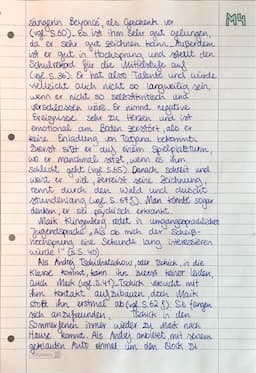 Sängerin Beyoncé, als Geschenk vor
(vgl. S.60). Es ist ihm sehr gut gelungen,
da er sehr gut zeichnen kann. Außerdem
ist er gut in Hochsprung und stellt den
Schulrekord für die Mittelstufe auf
(vgl. S.36). Er hat also Talente und würde
vielleicht auch nicht so langweilig sein,
wenn er nicht so selbstkritisch und
verschlossen wäre. Er nimmt negative
Ereignisse sehr zu Herzen und ist
emotional am Boden zerstört, als er
keine Einladung von Tatjana bekommt.
Zuerst sitzt er auf einem Spielplatzturm
wo er manchmal sitzt, wenn es ihm
schlecht geht (vgl. S.65). Danach schreit und
weint er viel, zerreist seine Zeichnung,
rennt durch den Wald und duscht
stundenlang (vgl. S.67f). Man könnte sogar
denken, er sei psychisch erkrankt.
Maik Klingenberg redet in umgangssprachlicher
Jugendsprache: „Als ob mich der Scheiß-
hochsprung eine Sekunde lang interessieren
würde!" (S.40).
Als Andrej Tschichatschow, oder Tschick, in die
Klasse kommt, kann ihn zuerst keiner leiden,
auch Maik (vgl. S.41). Tschick versucht mit
ihm Kontakt aufzubauen, doch Maik
stößt ihn erstmal ab (vgl. S.62f). Sie fangen
sich anzufreunden, Tschick in den
Sommerferien immer wieder zu Maik nach
Hause kommt. Als Andrej anbietet, mit seinem
geklauten Auto einmal um den Block zu
M4